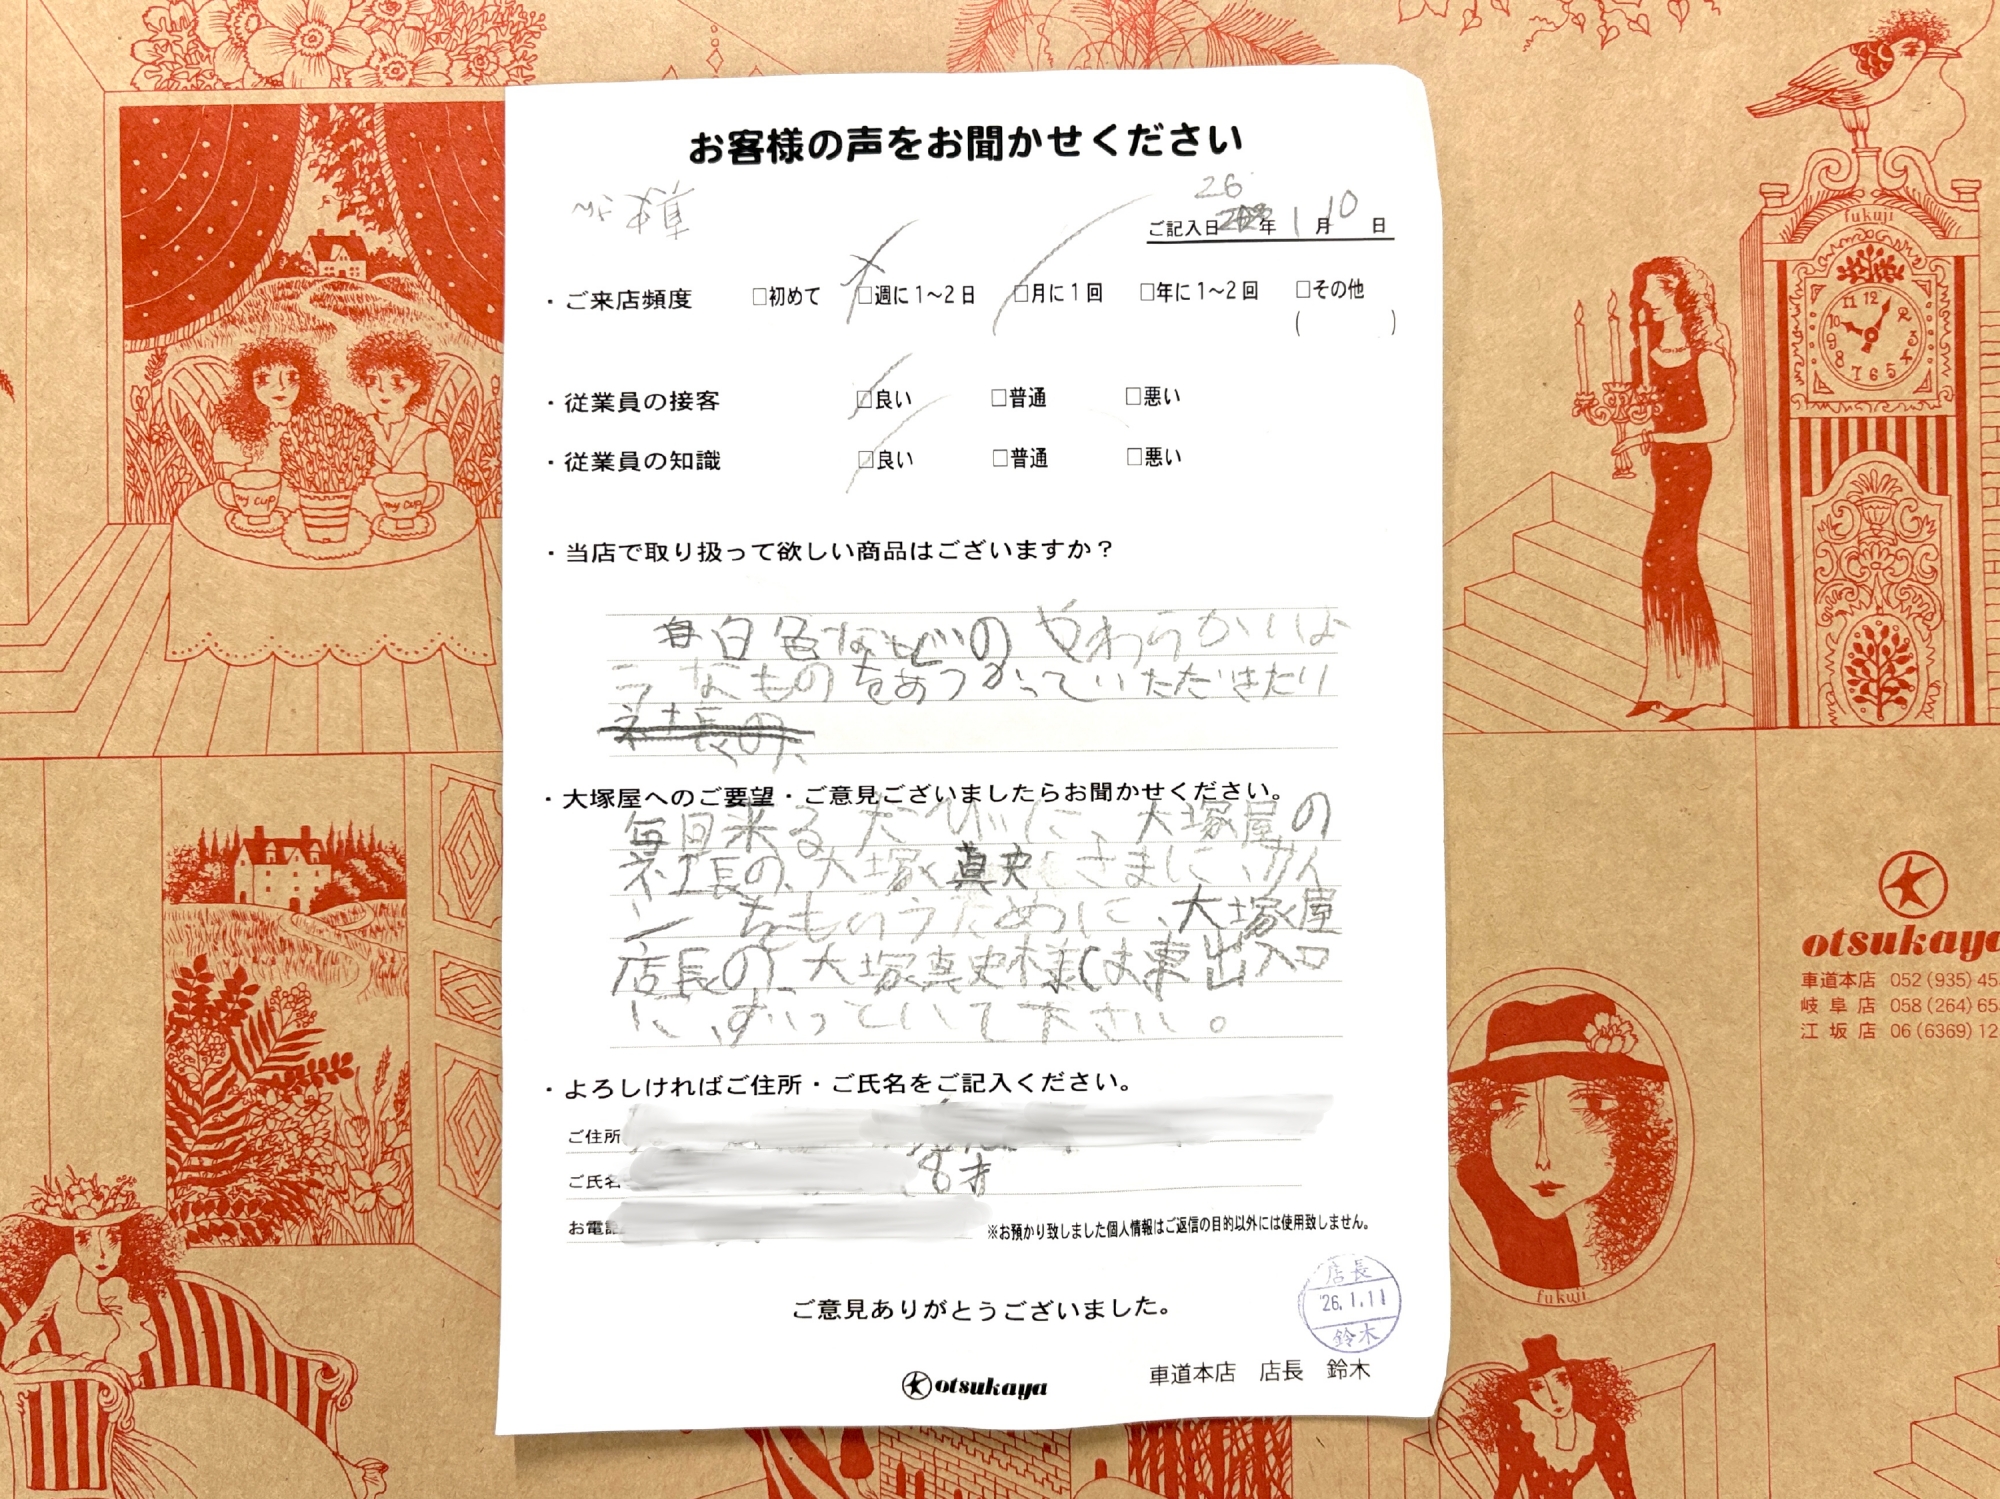 お客様の声をお聞かせください
26
ご記入日 年 1月10日
・ご来店頻度 □初めて □週に1〜2日 □月に1回 □年に1〜2回 □その他
( )
・従業員の接客 □良い □普通 □悪い
・従業員の知識 □良い □普通 □悪い
・当店で取り扱って欲しい商品はございますか？
白色などのやわらかいよ
うなものをあつかっていただきたり
社長の、
・大塚屋へのご要望・ご意見ございましたらお聞かせください。
毎日来るたびに、大塚屋の
社長の、大塚真史さまに、サイ
ンをもらうために、大塚屋
店長の、大塚真史様は東出入口
に、ずっていて下さい。
・よろしければご住所・ご氏名をご記入ください。
ご住所
ご氏名 8才
お電話
※お預かり致しました個人情報はご返信の目的以外には使用致しません。
店長
'26.1.11
鈴木
ご意見ありがとうございました。
otsukaya
車道本店 店長 鈴木
my cup
my cup
fukuji
11 12 2 3 4 5 6 7 8 9 10
otsukaya
車道本店 052(935)45
岐阜店 058(264)65
江坂店 06(6369)12
fukuji